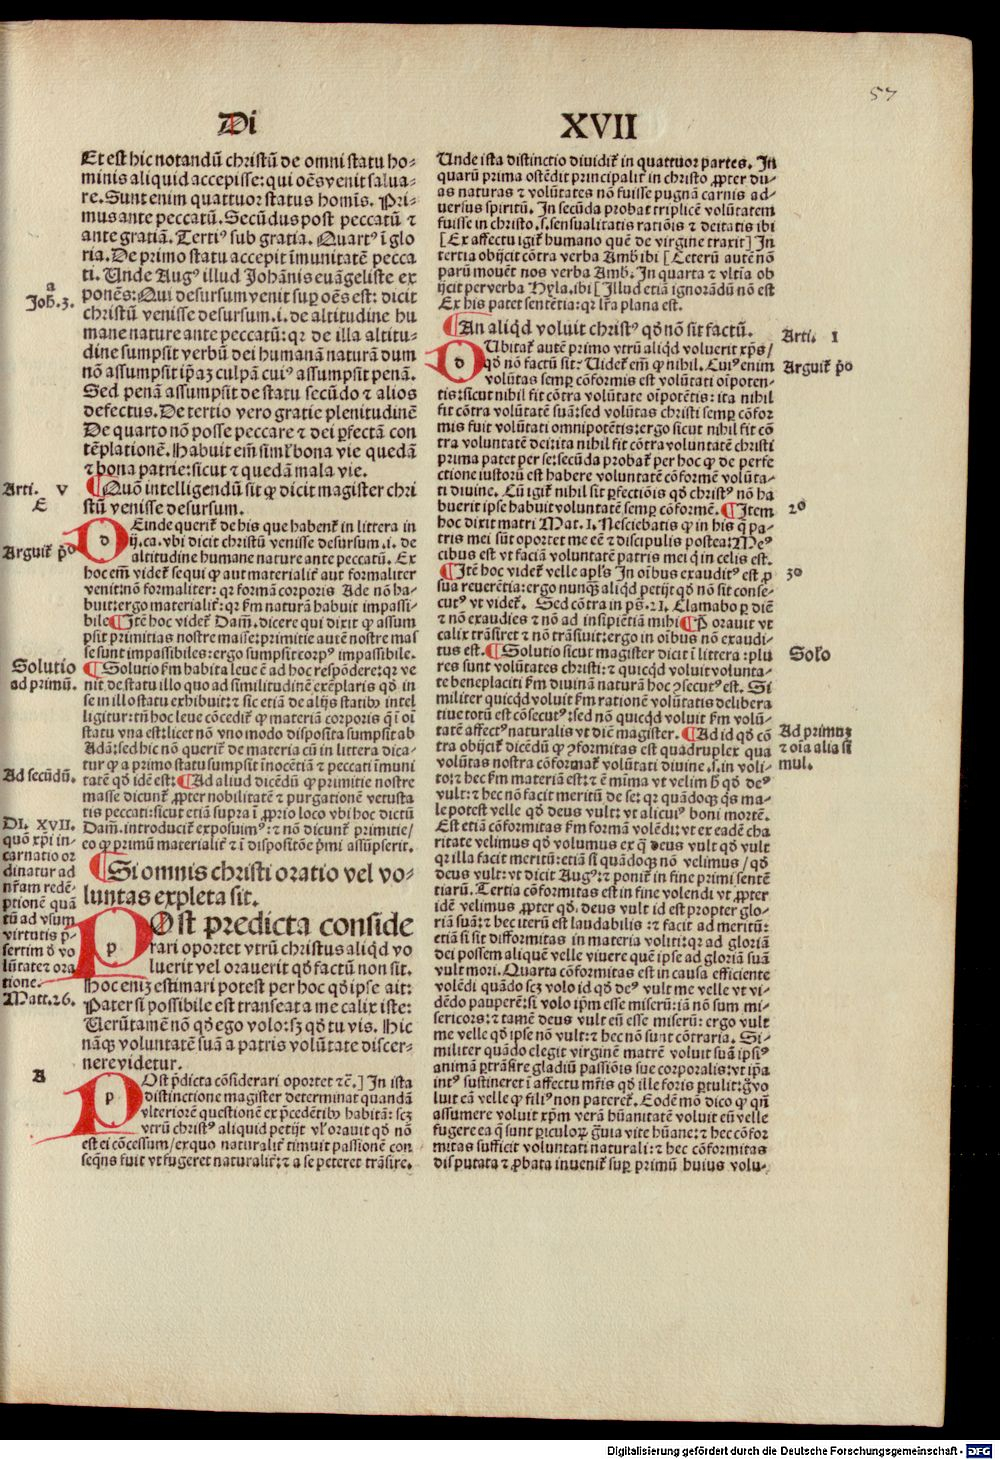 57
Di
XVII
Et est hic notandū christū de omni statu ho-
minis aliquid accepisse: qui oēs venit salua-
re. Sunt enim quattuor status homīs. Pri-
mus ante peccatū. Secūdus post peccatū ⁊
ante gratiā. Tertiꝰ sub gratia. Quartꝰ ī glo
ria. De primo statu accepit īmunitatē pecca
ti. Unde Augꝰ illud Johānis euāgeliste ex
ponēs: Qui desursum venit suꝑ oēs est: dicit
christū venisse desursum .i. de altitudine hu
mane nature ante peccatū: qꝛ de illa altitu-
dine sumpsit verbū dei humanā naturā dum
nō assumpsit ip̄aꝫ culpā cuiꝰ assumpsit penā.
Sed penā assumpsit de statu secūdo ⁊ alios
defectus. De tertio vero gratie plenitudinē
De quarto nō posse peccare ⁊ dei ꝑfectā con
tēplationē. Habuit em̄ siml̓ bona vie quedā
⁊ bona patrie: sicut ⁊ quedā mala vie.
a
Joh. 3.
Arti. V
E
¶ Quō intelligendū sit ꝙ dicit magister chri
stū venisse desursum.
Arguit̄ p̄o
d
DEinde querit̄ de his que habent̄ in littera in
ij. ca. vbi dicit christū venisse desursum .i. de
altitudine humane nature ante peccatū. Ex
hoc em̄ videt̄ sequi ꝙ aut materialit̄ aut formaliter
venit: nō formaliter: qꝛ formā corporis Ade nō ha-
buit: ergo materialit̄: qꝛ fm̄ naturā habuit impassi-
bile ¶ Itē hoc videt̄ Dam̄. dicere qui dixit ꝙ assum
psit primitias nostre masse: primitie autē nostre mas
se sunt impassibiles: ergo sumpsit corpꝰ impassibile.
Solutio
ad primū.
¶ Solutio fm̄ habita leue ē ad hoc respōdere: qꝛ ve
nit de statu illo quo ad similitudinē exēplaris qd̄ in
se in illo statu exhibuit: ⁊ sic etiā de alijs statibꝰ intel
ligitur: tn̄ hoc leue cōcedit̄ ꝙ materiā corporis q̄ ī oī
statu vna est: licet nō vno modo disposita sumpsit ab
Adā: sed hic nō querit̄ de materia cū in littera dica-
tur ꝙ a primo statu sumpsit inocētiā ⁊ peccati īmuni
Ad secūdū.
tatē qd̄ idē est: ¶ Ad aliud dicēdū ꝙ primitie nostre
masse dicunt̄ ꝓpter nobilitatē ⁊ purgationē vetusta
tis peccati: sicut etiā supra ī ꝓprio loco vbi hoc dictū
Dam̄. introducit̄ exposuimꝰ: ⁊ nō dicunt̄ primitie/
eo ꝙ primū materialit̄ ⁊ ī dispositōe p̄mi assūpserit.
DI. XVII.
quō xp̄i in-
carnatio or
dinatur ad
nr̄am redē-
ptionē quā
tū ad vsum
virtutis p̄-
sertim q̄ vo
lūtate ⁊ ora
tione.
Matt. 26.
¶ Si omnis christi oratio vel vo-
luntas expleta sit.
p
POst predicta conside
rari oportet vtrū christus aliqd̄ vo
luerit vel orauerit qd̄ factū non sit.
Hoc eniꝫ estimari potest per hoc qd̄ ip̄e ait:
Pater si possibile est transeat a me calix iste:
Uerūtamē nō qd̄ ego volo: sꝫ qd̄ tu vis. Hic
nāqꝫ voluntatē suā a patris volūtate discer-
nere videtur.
A
p
POst p̄dicta cōsiderari oportet ⁊c̄.] In ista
distinctione magister determinat quandā
vlteriorē questionē ex p̄cedētibꝰ habitā: scꝫ
vtrū christꝰ aliquid petijt vl̓ orauit qd̄ nō
est ei cōcessum/ ex quo naturalit̄ timuit passionē con
seq̄ns fuit vt fugeret naturalit̄: ⁊ a se peteret trāsire.
Unde ista distinctio diuidit̄ in quattuor partes. In
quarū prima ostēdit principalit̄ in christo ꝓpter du-
as naturas ⁊ volūtates nō fuisse pugnā carnis ad-
uersus spiritū. In secūda probat triplicē voluntatem
fuisse in christo .s. sensualitatis ratiōis ⁊ deitatis ibi
[Ex affectu igit̄ humano quē de virgine traxit] In
tertia obijcit cōtra verba Amb̄ ibi [Ceterū autē nō
parū mouēt nos verba Amb̄. In quarta ⁊ vltīa ob
ijcit per verba Hyla. ibi [Illud etiā ignorādū nō est
Ex his patet sentētia: qꝛ lr̄a plana est.
Arti. 1
¶ An aliqd̄ voluit christꝰ qd̄ nō sit factū.
Arguit̄ p̄o
d
DUbitat̄ autē primo vtrū aliqd̄ voluerit xp̄s/
qd̄ nō factū sit: Uidet̄ em̄ ꝙ nihil. Cuiꝰ enim
volūtas semꝑ cōformis est volūtati oīpoten-
tis: sicut nihil fit cōtra volūtatē oīpotētis: ita nihil
fit cōtra volūtatē suā: sed volūtas christi semꝑ cōfor
mis fuit volūtati omnipotētis: ergo sicut nihil fit cō
tra voluntatē dei: ita nihil fit cōtra voluntatē christi
prima patet per se: secūda probat̄ per hoc ꝙ de perfe
ctione iustorū est habere voluntatē cōformē volūta-
ti diuine. Cū igit̄ nihil sit ꝑfectiōis qd̄ christꝰ nō ha
buerit ip̄e habuit voluntatē semꝑ cōformē. ¶ Item
2o
hoc dixit matri Mat. 1. Nesciebatis ꝙ in his q̄ pa-
tris mei sūt oportet me eē ⁊ discipulis postea: Meꝰ
cibus est vt faciā voluntatē patris mei q̄ in celis est.
¶ Itē hoc videt̄ velle apl̄s In oībus exauditꝰ est ꝓ
3o
sua reuerētia: ergo nunqꝫ aliqd̄ petijt qd̄ nō sit conse-
cutꝰ vt videt̄. Sed cōtra in ps̄. 21. Clamabo ꝑ diē
⁊ nō exaudies ⁊ nō ad insipiētiā mihi ¶ P̄ orauit vt
calix trāsiret ⁊ nō trāsiuit: ergo in oībus nō exaudi-
tus est. ¶ Solutio sicut magister dicit ī littera: plu
Solo
res sunt volūtates christi: ⁊ quicqd̄ voluit volunta-
te beneplaciti fm̄ diuinā naturā hoc ꝯsecutꝰ est. Si
militer quicqd̄ voluit fm̄ rationē volūtatis delibera
tiue totū est cōsecutꝰ: sed nō quicqd̄ voluit fm̄ volū-
tatē affectꝰ naturalis vt diē magister. ¶ Ad id qd̄ cō
Ad primuꝫ
⁊ oīa alia sī
mul.
tra obijcit̄ dicēdū ꝙ ꝯformitas est quadruplex qua
volūtas nostra cōformat̄ volūtati diuine .s. in voli-
to: ⁊ hec fm̄ materiā est: ⁊ ē mīma vt velim h̄ qd̄ deꝰ
vult: ⁊ hec nō facit meritū de se: qꝛ quādoqꝫ qs̄ ma-
le potest velle qd̄ deus vult: vt alicuiꝰ boni mortē.
Est etiā cōformitas fm̄ formā volēdi: vt ex eadē cha
ritate velimus qd̄ volumus ex q̄ deus vult qd̄ vult
qꝛ illa facit meritū: etiā si quādoqꝫ nō velimus/ qd̄
deus vult: vt dicit Augꝰ: ⁊ ponit̄ in fine primi sentē
tiarū. Tertia cōformitas est in fine volendi vt ꝓpter
idē velimus ꝓpter qd̄. deus vult id est propter glo-
riā suā: ⁊ hec iterū est laudabilis: ⁊ facit ad meritū:
etiā si sit difformitas in materia voliti: qꝛ ad gloriā
dei possem aliquē velle viuere quē ip̄se ad gloriā suā
vult mori. Quarta cōformitas est in causa efficiente
volēdi quādo scꝫ volo id qd̄ deꝰ vult me velle vt vi-
dēdo pauperē: si volo ip̄m esse miserū: iā nō sum mi-
sericors: ⁊ tamē deus vult eū esse miserū: ergo vult
me velle qd̄ ip̄se nō vult: ⁊ hec nō sunt cōtraria. Si-
militer quādo elegit virginē matrē voluit suā ip̄siꝰ
animā ꝑtrāsire gladiū passiōis sue corporalis: vt ip̄a
intꝰ sustineret ī affectu mr̄is qd̄ ille foris ꝑtulit: g̊ vo
luit eā velle ꝙ filiꝰ non pateret̄. Eodē mō dico ꝙ qn̄
assumere voluit xp̄m verā hūanitatē voluit eū velle
fugere ea q̄ sunt ꝑiculoꝝ gr̄uia vite hūane: ⁊ hec cōfor
mitas sufficit voluntati naturali: ⁊ hec cōformitas
disputata ⁊ ꝓbata inuenit̄ suꝑ primū huius volu-
Digitalisierung gefördert durch die Deutsche Forschungsgemeinschaft - DFG